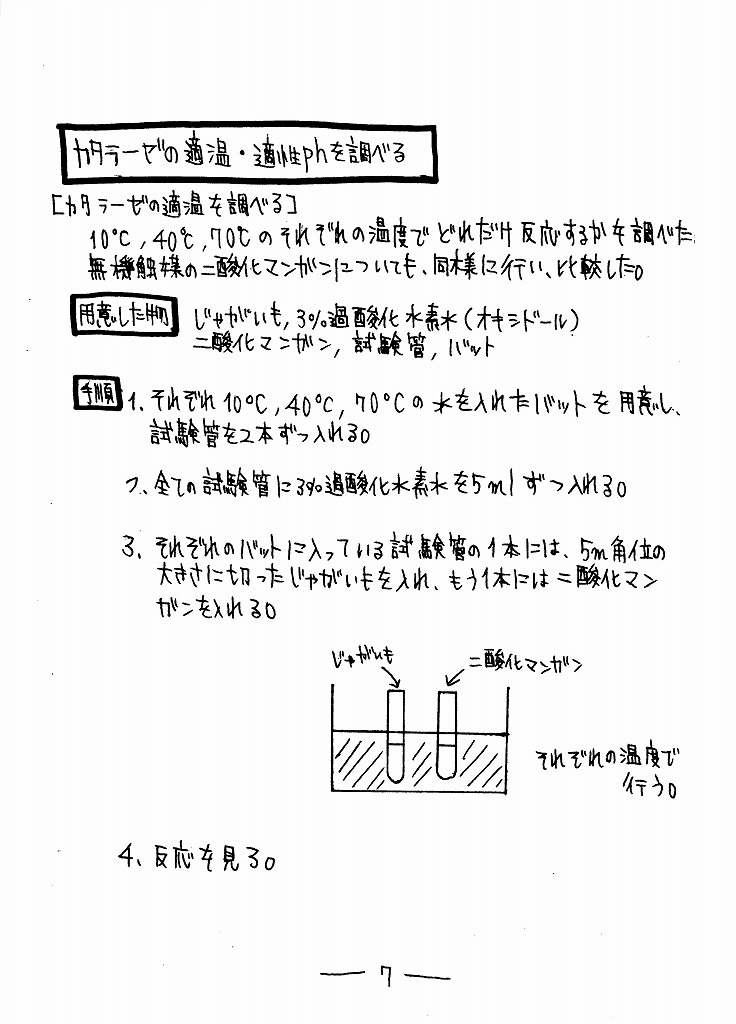 カタラーゼの適温・適性phを調べる
[カタラーゼの適温を調べる]
10℃,40℃,70℃のそれぞれの温度でどれだけ反応するかを調べた.
無機触媒の二酸化マンガンについても、同様に行い、比較した。
用意した物 じゃがいも,3%過酸化水素水(オキシドール)
二酸化マンガン,試験管,バット
手順 1、それぞれ10℃,40℃,70℃の水を入れたバットを用意し、
試験管を2本ずつ入れる。
2、全ての試験管に3%過酸化水素水を5mlずつ入れる。
3、それぞれのバットに入っている試験管の1本には、5m角位の
大きさに切ったじゃがいもを入れ、もう1本には二酸化マン
ガンを入れる。
じゃがいも
二酸化マンガン
それぞれの温度で
行う。
4、反応を見る。
— 7 —